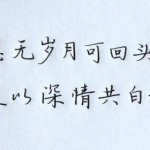 无岁月可回头
以深情共白